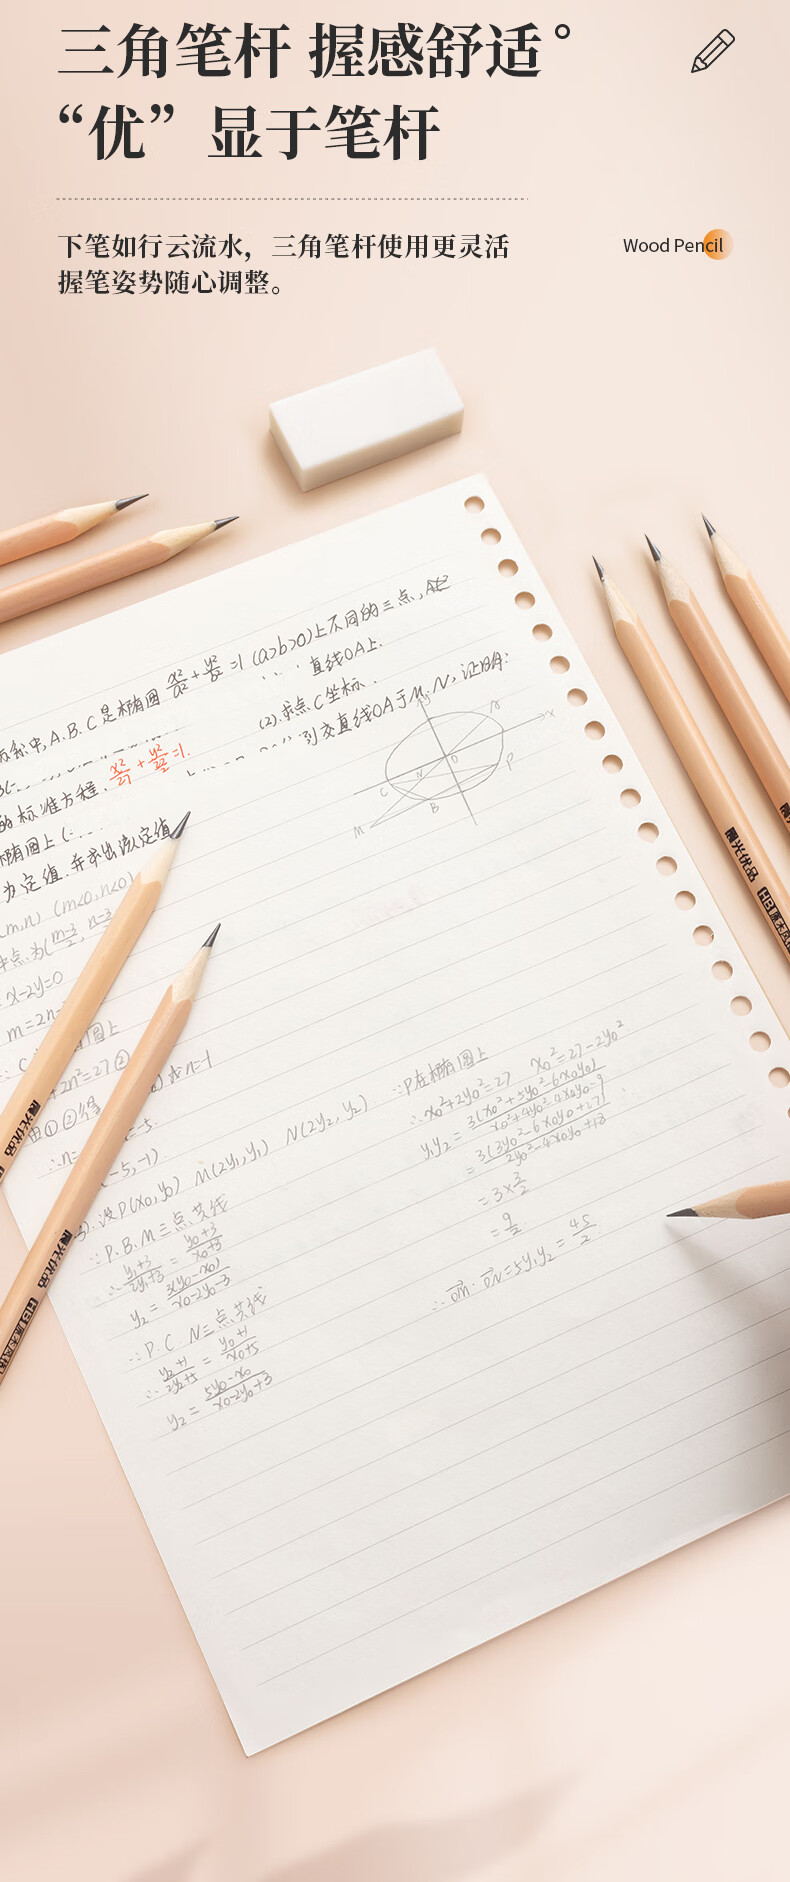 三角笔杆 握感舒适°
“优”显于笔杆
下笔如行云流水，三角笔杆使用更灵活
握笔姿势随心调整。
Wood Pencil
中,A.B.C是椭圆 x²/a² + y²/b² =1 (a>b>0)上不同的三点,
直线OA上.
(2).求点C坐标.
的标准方程. x²/27 + y²/ =1.
交直线OA于M.N,证明:
椭圆上(
为定值.并求出该定值
y
N
x
O
P
N
C
B
M
m,n) (m<0,n<0)
中点为(m-3/2, n-3/2
x-2y=0
m=2n-
圆上
+2n²=27②
或n=-1
由①②得
∴n= =-5.
(-5,-1)
设P(x₀,y₀) M(2y₁,y₁) N(2y₂,y₂)
∵P.B.M三点共线
∴ y₁+3/2y₁+3 = y₀+3/x₀+3
y₂ = 3(y₀-x₀)/x₀-2y₀-3
∵P.C.N三点共线
∴ y₂+1/2y₂+5 = y₀+1/x₀+5
y₂ = 5y₀-x₀/x₀-2y₀+3
∵P在椭圆上
∴x₀²+2y₀²=27 x₀²=27-2y₀²
y₁y₂ = 3(x₀²+5y₀²-6x₀y₀)/x₀²+4y₀²-4x₀y₀-9
= 3(3y₀²-6x₀y₀+27)/2y₀²-4x₀y₀+18
=3×3/2
=9/2
∴OM·ON=5y₁y₂=45/2
晨光优品
晨光优品 HB 原木风
晨光优品
晨光优品 HB 原木风